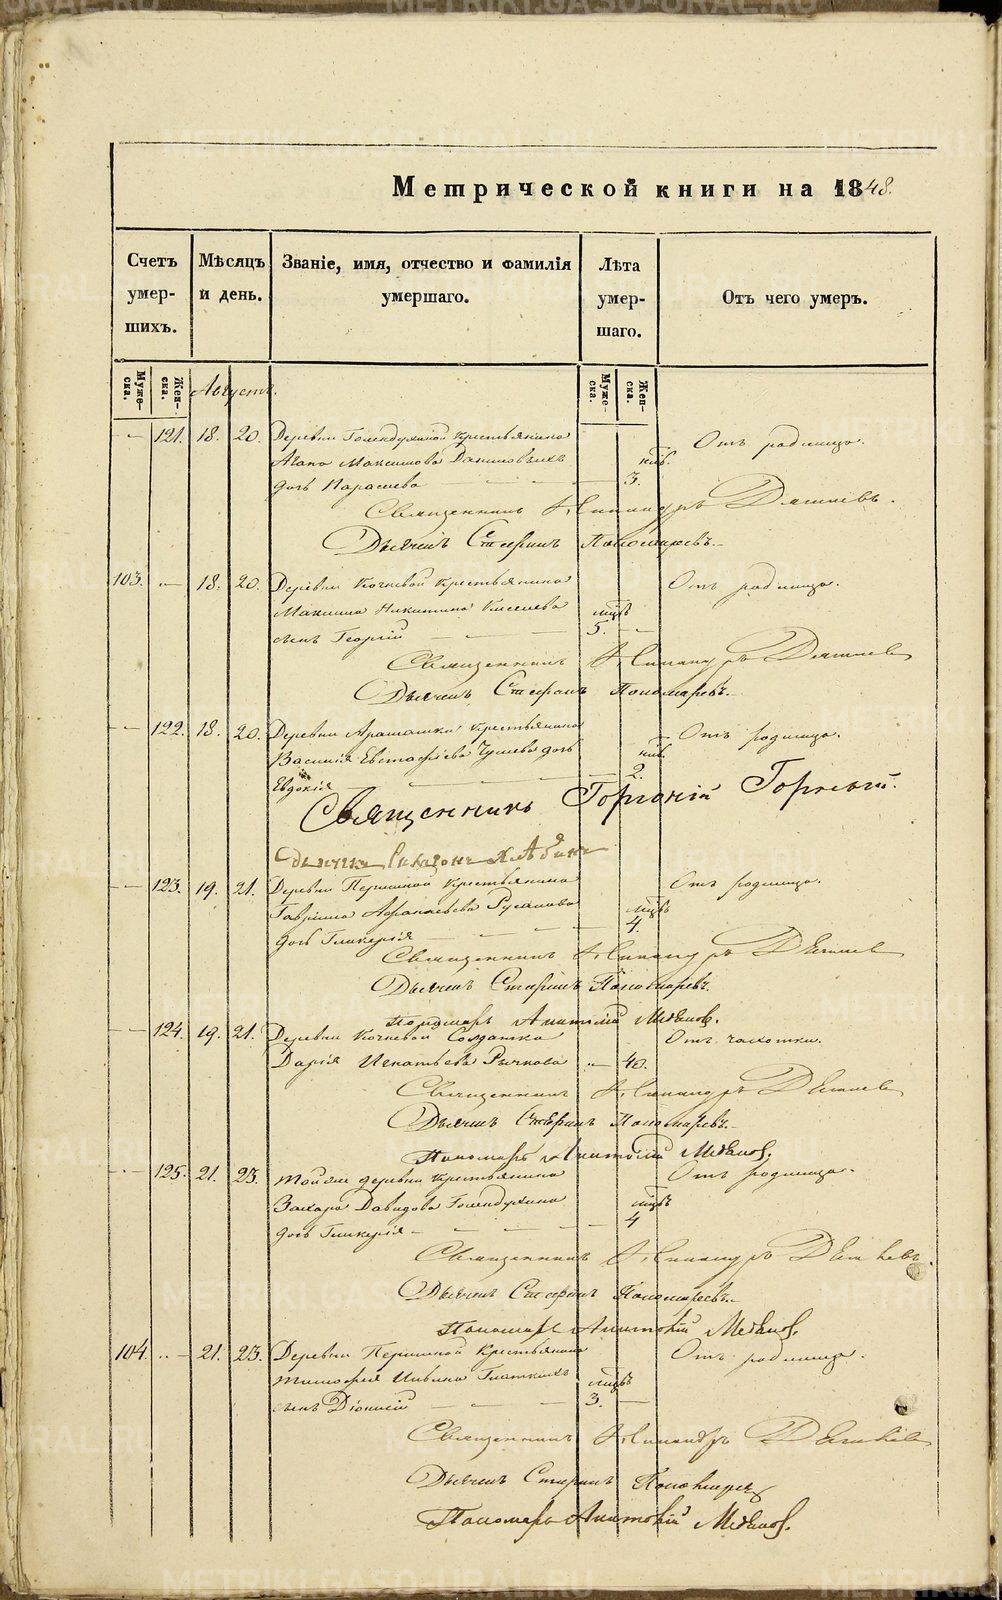 Метрической книги на 1848.
Счетъ умершихъ.
Мѣсяцъ и день.
Званіе, имя, отчество и фамилія умершаго.
Лѣта умершаго.
Отъ чего умеръ.
Мужеска.
Женска.
Августъ.
Мужеска.
Женска.
121. 18. 20. Деревни Голендухиной крестьянина Отъ родимца.
Агапа Максимова нед.
дочь Параскева 3.
Священникъ Александръ
Дьячекъ Стефанъ Пономаревъ.
103. 18. 20. Деревни Кочневой крестьянина Отъ родимца.
Максима Никитина Киселева мцвъ
сынъ Георгій 5.
Священникъ Александръ
Дьячекъ Стефанъ Пономаревъ.
122. 18. 20. Деревни Арамашки крестьянина Отъ родимца.
Василія Евстафіева дочь нед.
Евдокія 2.
Священникъ Горгоній Горный.
Дьячекъ
123. 19. 21. Деревни Першиной крестьянина Отъ родимца.
Гаврила Афанасьева Русакова мцвъ
дочь Гликерія 4.
Священникъ Александръ
Дьячекъ Стефанъ Пономаревъ.
Пономарь Анатолій
124. 19. 21. Деревни Кочневой Солдатка Отъ чахотки.
Дарія Игнатьева Рычкова 40.
Священникъ Александръ
Дьячекъ Стефанъ Пономаревъ.
Пономарь Анатолій
125. 21. 23. Той же деревни крестьянина Отъ родимца.
Захара Давидова Голендухина мцвъ
дочь Гликерія 4
Священникъ Александръ
Дьячекъ Стефанъ Пономаревъ.
Пономарь Анатолій
104. 21. 23. Деревни Першиной Крестьянина Отъ родимца.
Тимофея Гладкихъ мцвъ
сынъ Діонисій 3.
Священникъ Александръ
Дьячекъ Стефанъ Пономаревъ
Пономарь Анатолій
METRIKI.GASO-URAL.RU